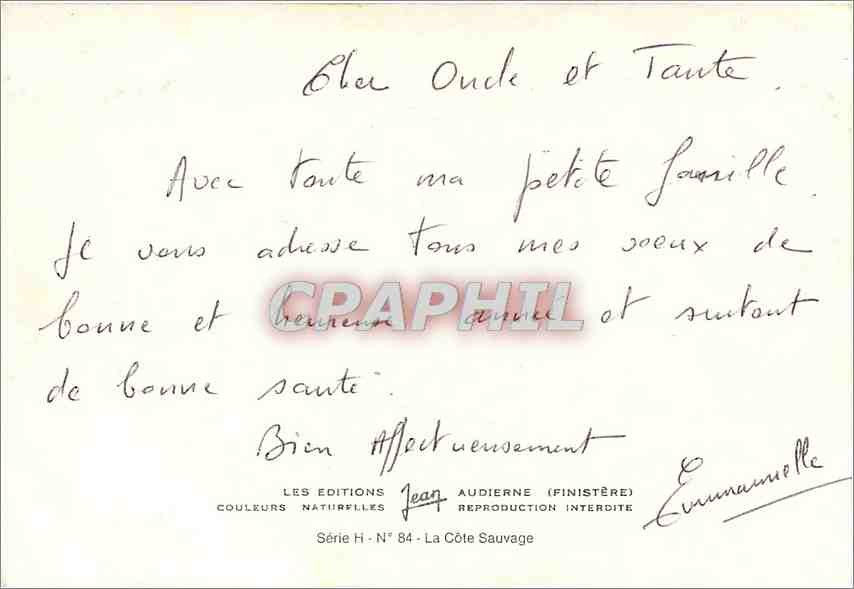 Cher Oncle et Tante.
Avec toute ma petite famille.
Je vous adresse tous mes voeux de
bonne et heureuse année et surtout
de bonne santé.
CPAPHIL
Bien Affectueusement
Emmanuelle
LES EDITIONS Jean AUDIERNE (FINISTÈRE)
COULEURS NATURELLES REPRODUCTION INTERDITE
Série H - N° 84 - La Côte Sauvage